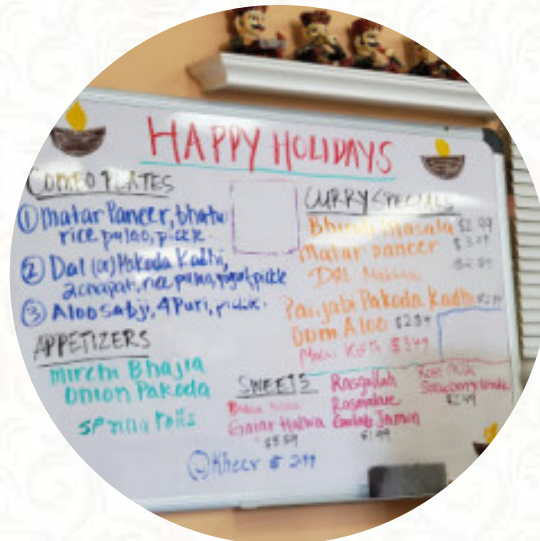 HAPPY HOLIDAYS
COMBO PLATES
① Matar Paneer, bhatu
rice pulao, pickle.
② Dal (or) Pakoda Kadhi,
2 chapati, rice pulao, papad, pickle
③ Aloo sabji, 4 Puri, pickle.
APPETIZERS
Mirchi Bhajia
Onion Pakoda
Spring rolls
CURRY SPECIALS
Bhindi Masala $2.99
Matar paneer $3.49
Dal
Panjabi Pakoda Kadhi
Dum Aloo
Malai Kofta $3.49
SWEETS
Gajar Halwa
$5.59
Rasgullah
Rasmalai
Gulab Jamin
$1.99
$2.49
Kheer $2.99